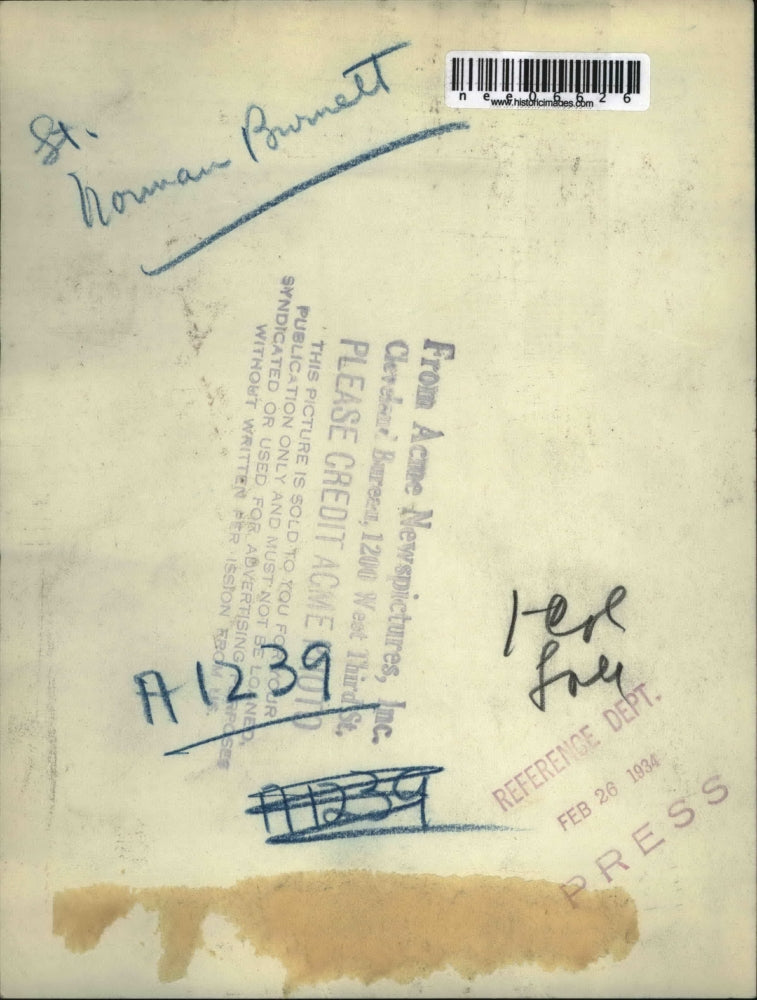 n e e 0 6 6 2 6
www.historicimages.com
St.
Norman Burnett
From Acme Newspictures, Inc.
Cleveland Bureau, 1200 West Third St.
PLEASE CREDIT ACME PHOTO
THIS PICTURE IS SOLD TO YOU FOR YOUR
PUBLICATION ONLY AND MUST NOT BE LOANED,
SYNDICATED OR USED FOR ADVERTISING PURPOSES
WITHOUT WRITTEN PER ISSION FROM
A1239
A1239
REFERENCE DEPT.
FEB 26 1934
PRESS